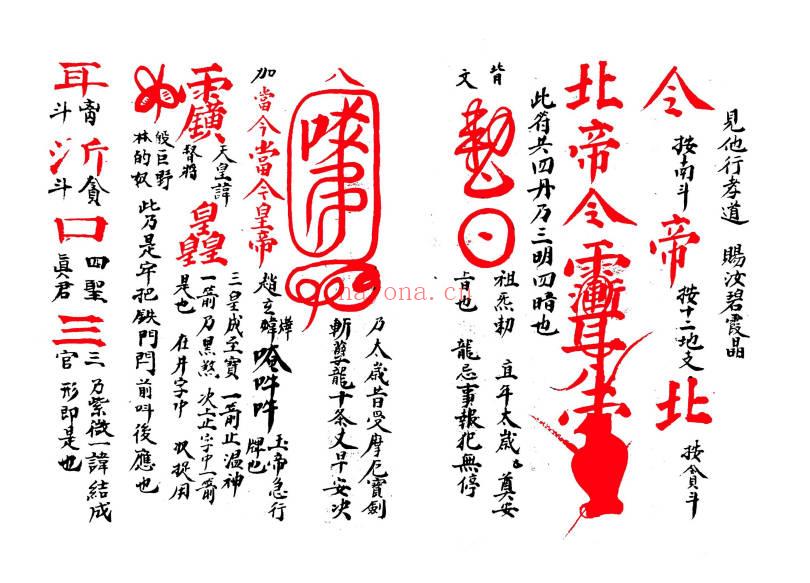 見他行孝道 賜汝碧霞晶
令 按南斗 帝 按十二地支 北 按貪斗
北帝令
此符共四丹乃三明四暗也
背文
祖炁勅 直年太歲 真安
音也 龍忌事報犯無停
八
乃太歲昔受摩厄寶劍
斬孽龍十条丈早安决
加 當今當今皇帝
趙玄 燁煒 唵吽吽 玉帝急行牌也
天皇諱 督將 皇皇皇
三皇成至寶 一箭止温神
一箭乃黑煞 次上正字中一箭
是也 在丼字中 状捉用
鉸巨野 林的奴
此乃是牢把鉄門閂前呌後應也
耳 斗 沂 貪斗 口 四聖真君 三 三官
乃紫微一諱結成
形即是也
nayona.cn